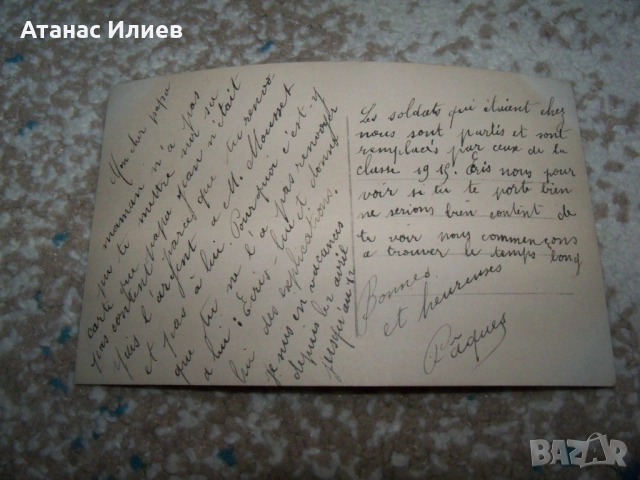 Атанас Илиев
Mon cher papa
maman n'a pas
pu te mettre sur sa
carte que papa Jean n'était
pas content parce que tu renvo
yais l'argent a M. Mousset
et pas à lui. Pourquoi c'est-y
que tu ne l'a pas renvoyer
a lui ; Écris-lui et donne
lui des explications.
je suis en vacances
depuis le 1er avril
jusqu'au 12
Les soldats qui étaient chez
nous sont partis et sont
remplacés par ceux de la
classe 1915. Eris nous pour
voir si tu te porte bien
ne serions bien content de
te voir nous commençons
a trouver le temps long
Bonnes
et heureuses
Pâques
BAZAR.bg